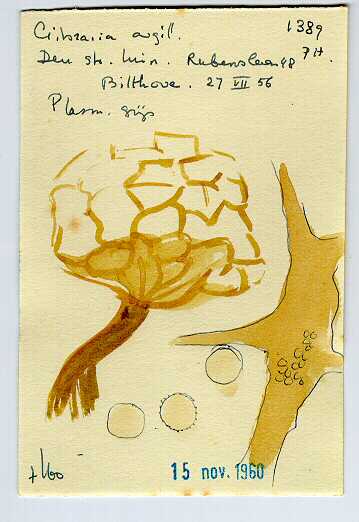 Cribraria argill. 1389
Den st. min. Rubenslaan 48 7H.
Bilthove. 27 VII 56
Plasm. grijs
15 nov. 1960